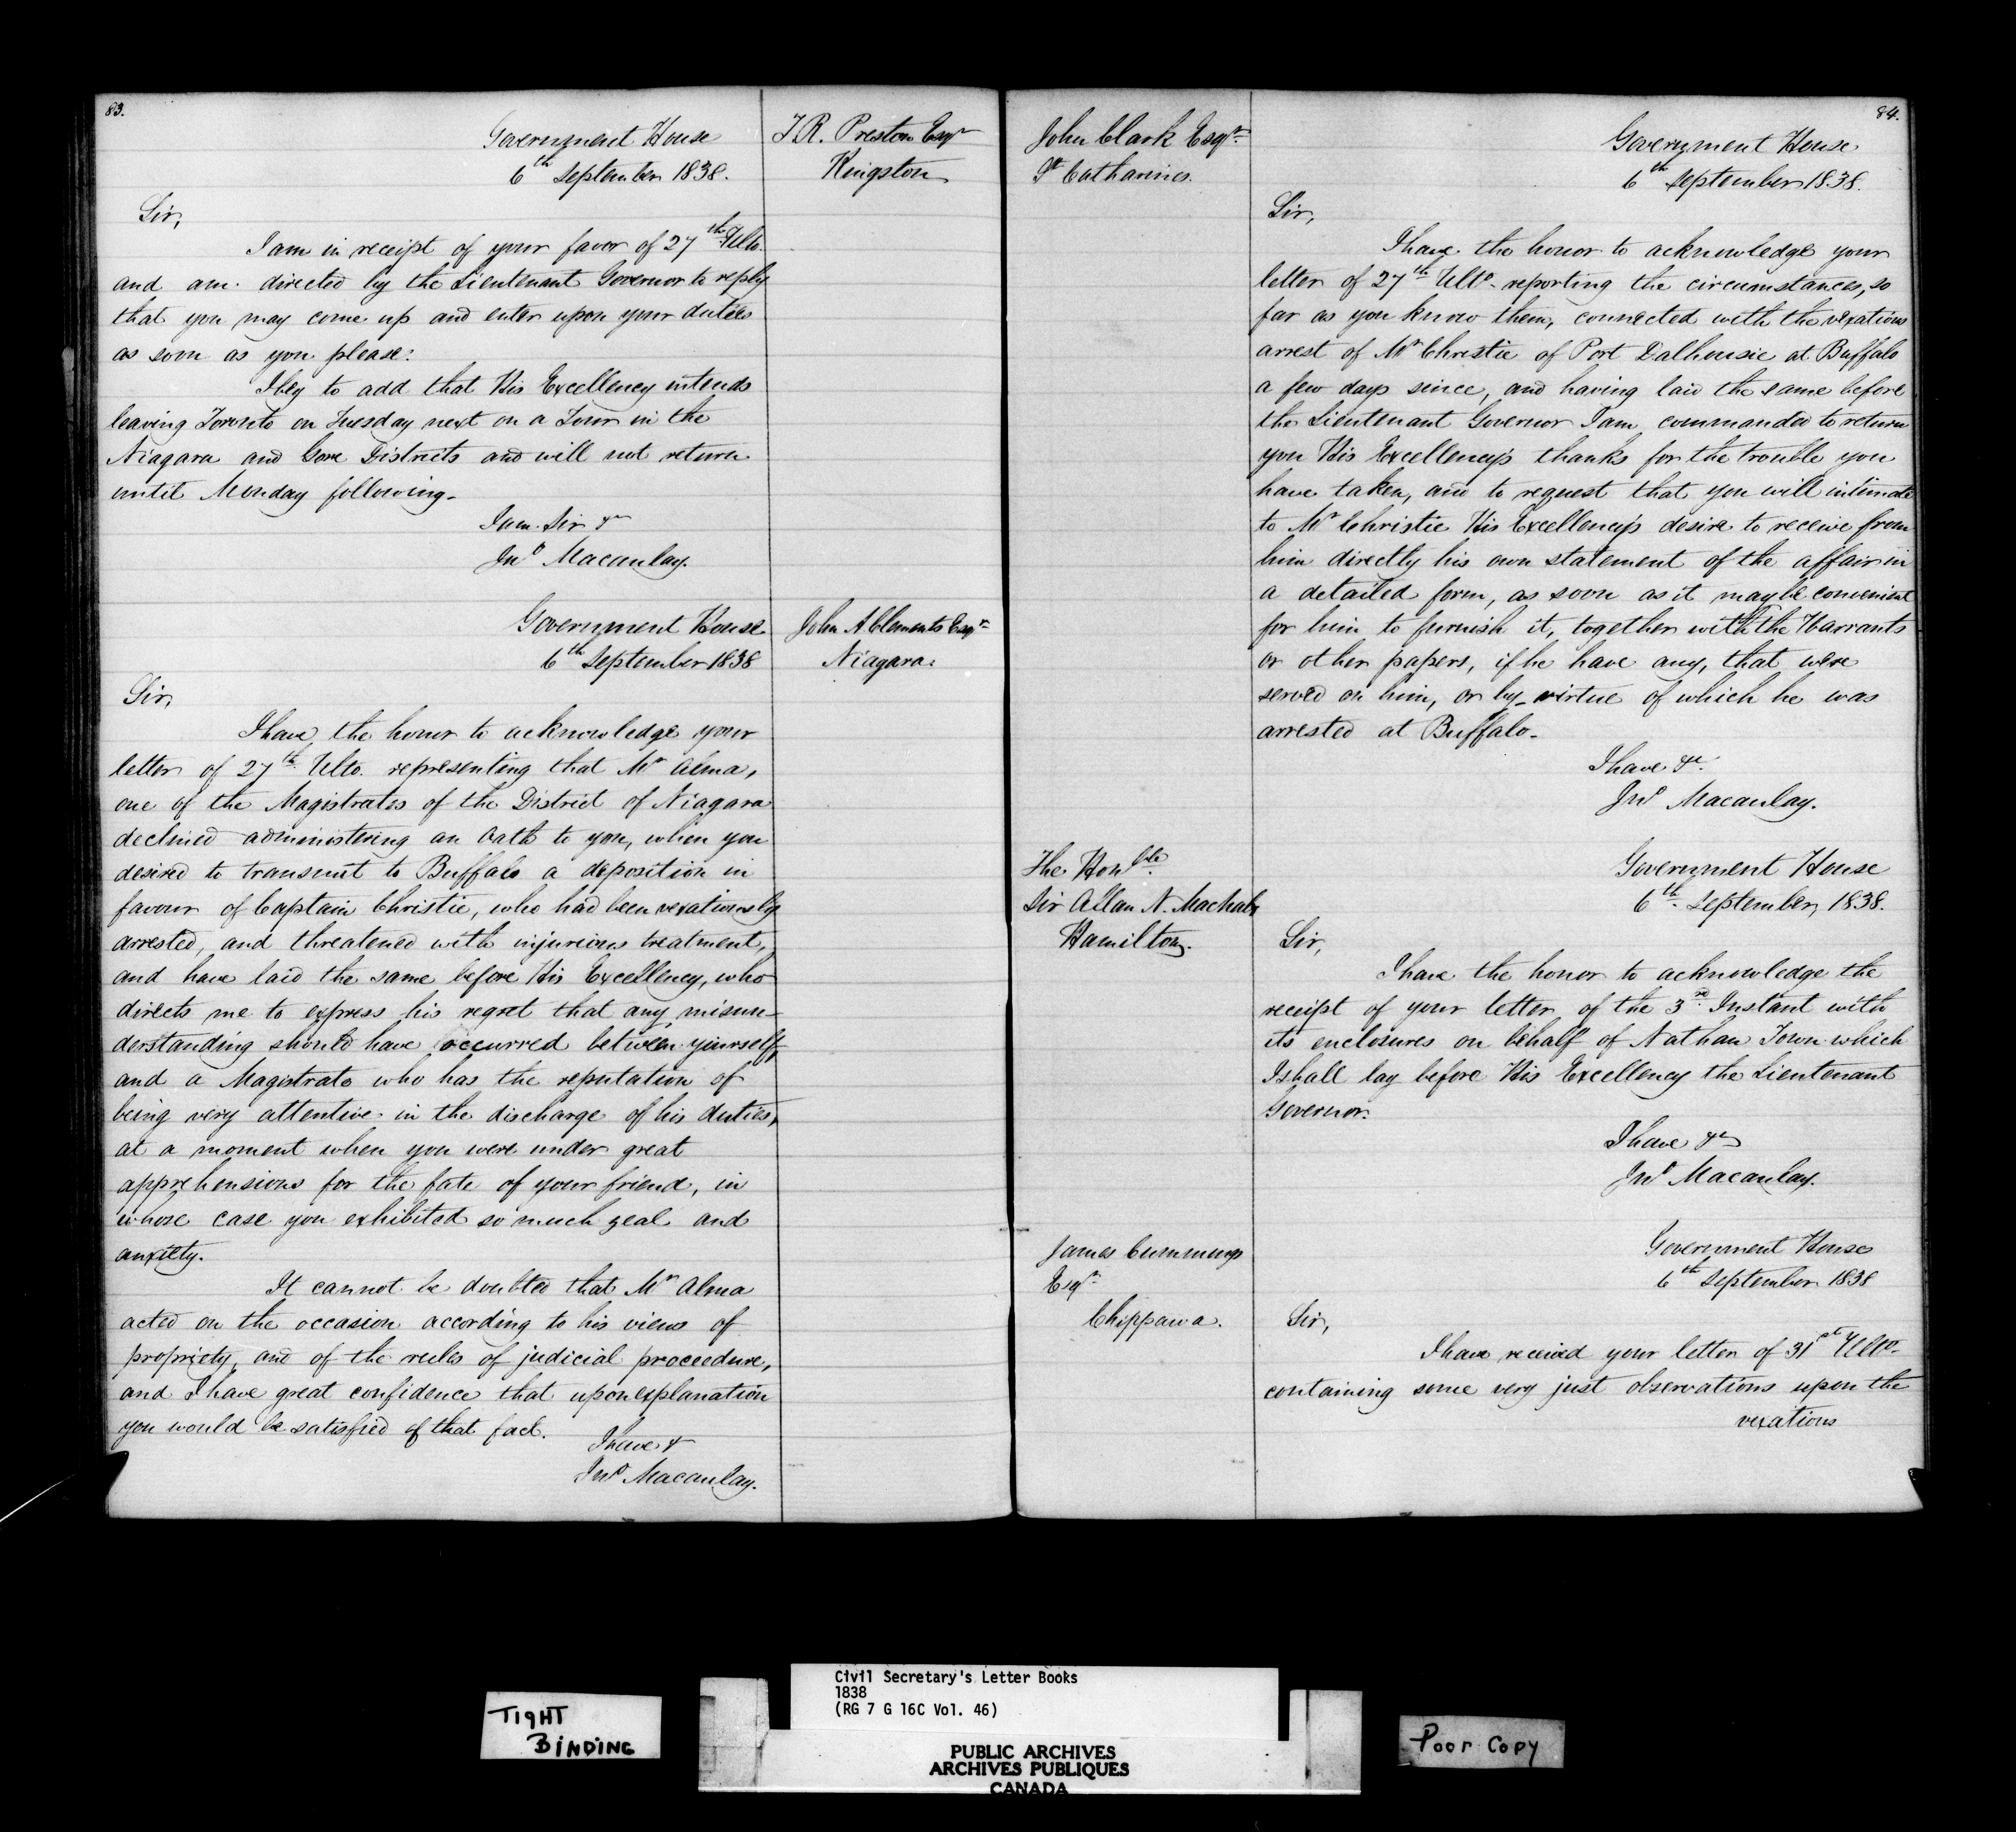 83.
Government House
6th September 1838.
T. R. Preston Esqr
Kingston
Sir,
I am in receipt of your favor of 27th Ulto.
and am directed by the Lieutenant Governor to reply
that you may come up and enter upon your duties
as soon as you please.
I beg to add that His Excellency intends
leaving Toronto on Tuesday next on a Tour in the
Niagara and Gore Districts and will not return
until Monday following.
I am Sir &c
Jno Macaulay.
Government House
6th September 1838
John A Clements Esqr
Niagara.
Sir,
I have the honor to acknowledge your
letter of 27th Ulto. representing that Mr Alma,
one of the Magistrates of the District of Niagara
declined administering an Oath to you, when you
desired to transmit to Buffalo a deposition in
favour of Captain Christie, who had been vexatiously
arrested, and threatened with injurious treatment,
and have laid the same before His Excellency, who
directs me to express his regret that any misun-
derstanding should have occurred between yourself,
and a Magistrate who has the reputation of
being very attentive in the discharge of his duties,
at a moment when you were under great
apprehensions for the fate of your friend, in
whose case you exhibited so much zeal and
anxiety.
It cannot be doubted that Mr Alma
acted on the occasion according to his views of
propriety, and of the rules of judicial proceedure,
and I have great confidence that upon explanation
you would be satisfied of that fact.
I have &
Jno Macaulay.
84.
John Clark Esqr
St Catharines.
Government House
6th September 1838.
Sir,
I have the honor to acknowledge your
letter of 27th Ulto. reporting the circumstances, so
far as you know them, connected with the vexatious
arrest of Mr Christie of Port Dalhousie at Buffalo
a few days since, and having laid the same before
the Lieutenant Governor I am commanded to return
you His Excellency's thanks for the trouble you
have taken, and to request that you will intimate
to Mr Christie His Excellency's desire to receive from
him directly his own statement of the affair in
a detailed form, as soon as it may be convenient
for him to furnish it, together with the Warrants
or other papers, if he have any, that were
served on him, or by virtue of which he was
arrested at Buffalo.
I have &c.
Jno Macaulay.
The Honble
Sir Allan N. Macnab
Hamilton.
Government House
6th September, 1838.
Sir,
I have the honor to acknowledge the
receipt of your letter of the 3rd Instant with
its enclosures on behalf of Nathan Town which
I shall lay before His Excellency the Lieutenant
Governor.
I have &c
Jno Macaulay.
James Cummings
Esqr
Chippawa.
Government House
6th September 1838
Sir,
I have received your letter of 31st Ulto.
containing some very just observations upon the
vexatious
TIGHT
BINDING
Civil Secretary's Letter Books
1838
(RG 7 G 16C Vol. 46)
PUBLIC ARCHIVES
ARCHIVES PUBLIQUES
CANADA
Poor Copy